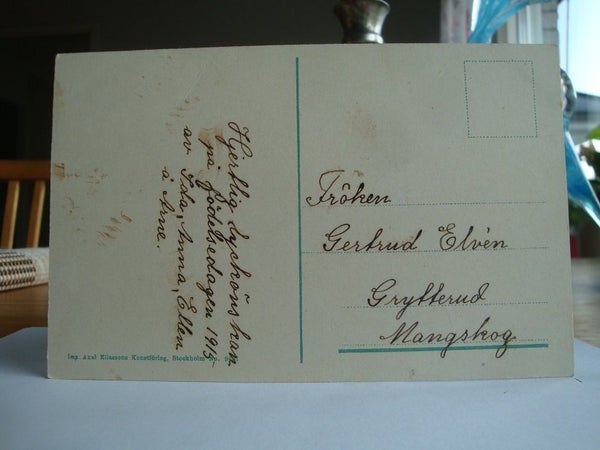 Hjertlig lyckönskan
på födelsedagen 1915
av Ida, Anna, Ellen
å Arne.
Fröken
Gertrud Elvén
Grytterud
Mangskog
Imp. Axel Eliassons Konstförlag, Stockholm No.